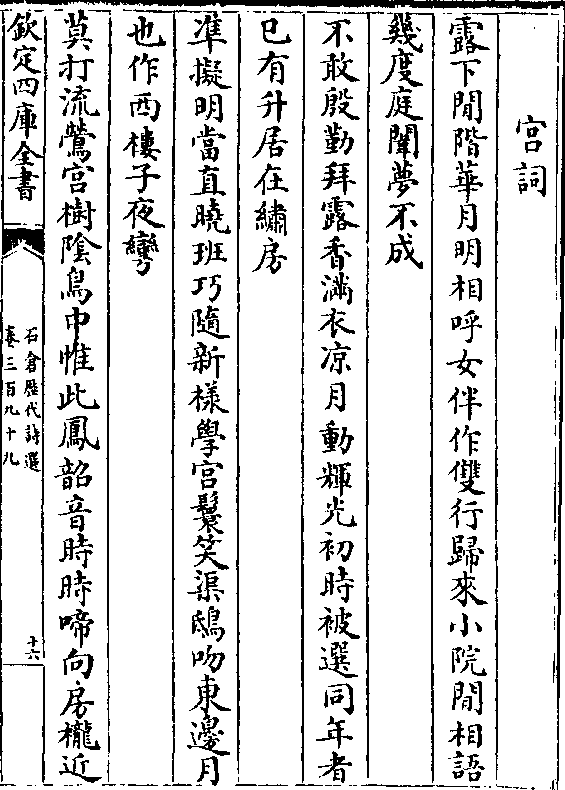 宫詞
露下閒階華月明相呼女伴作雙行歸來小院閒相語
幾度庭闈夢不成
不敢殷勤拜露香滿衣凉月動輝光初時被選同年者
已有升居在繡房
準擬明當直曉班巧隨新様學宫鬟笑渠鴟吻東邊月
也作西樓子夜彎
莫打流鶯宫樹陰鳥中惟此鳳韶音時時啼向房櫳近
欽定四庫全書
石倉歴代詩選
卷三百九十九
十六